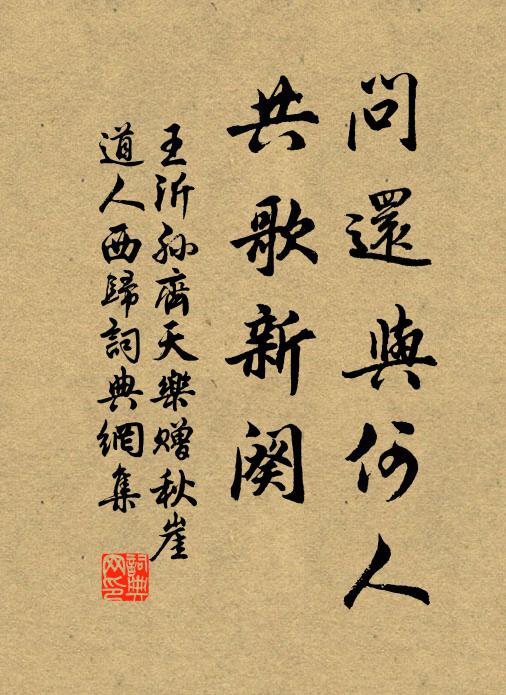 問還與何人
共歌新闋
王沂孫齊天樂贈秋崖
道人西歸詞典網集
詞典
网印